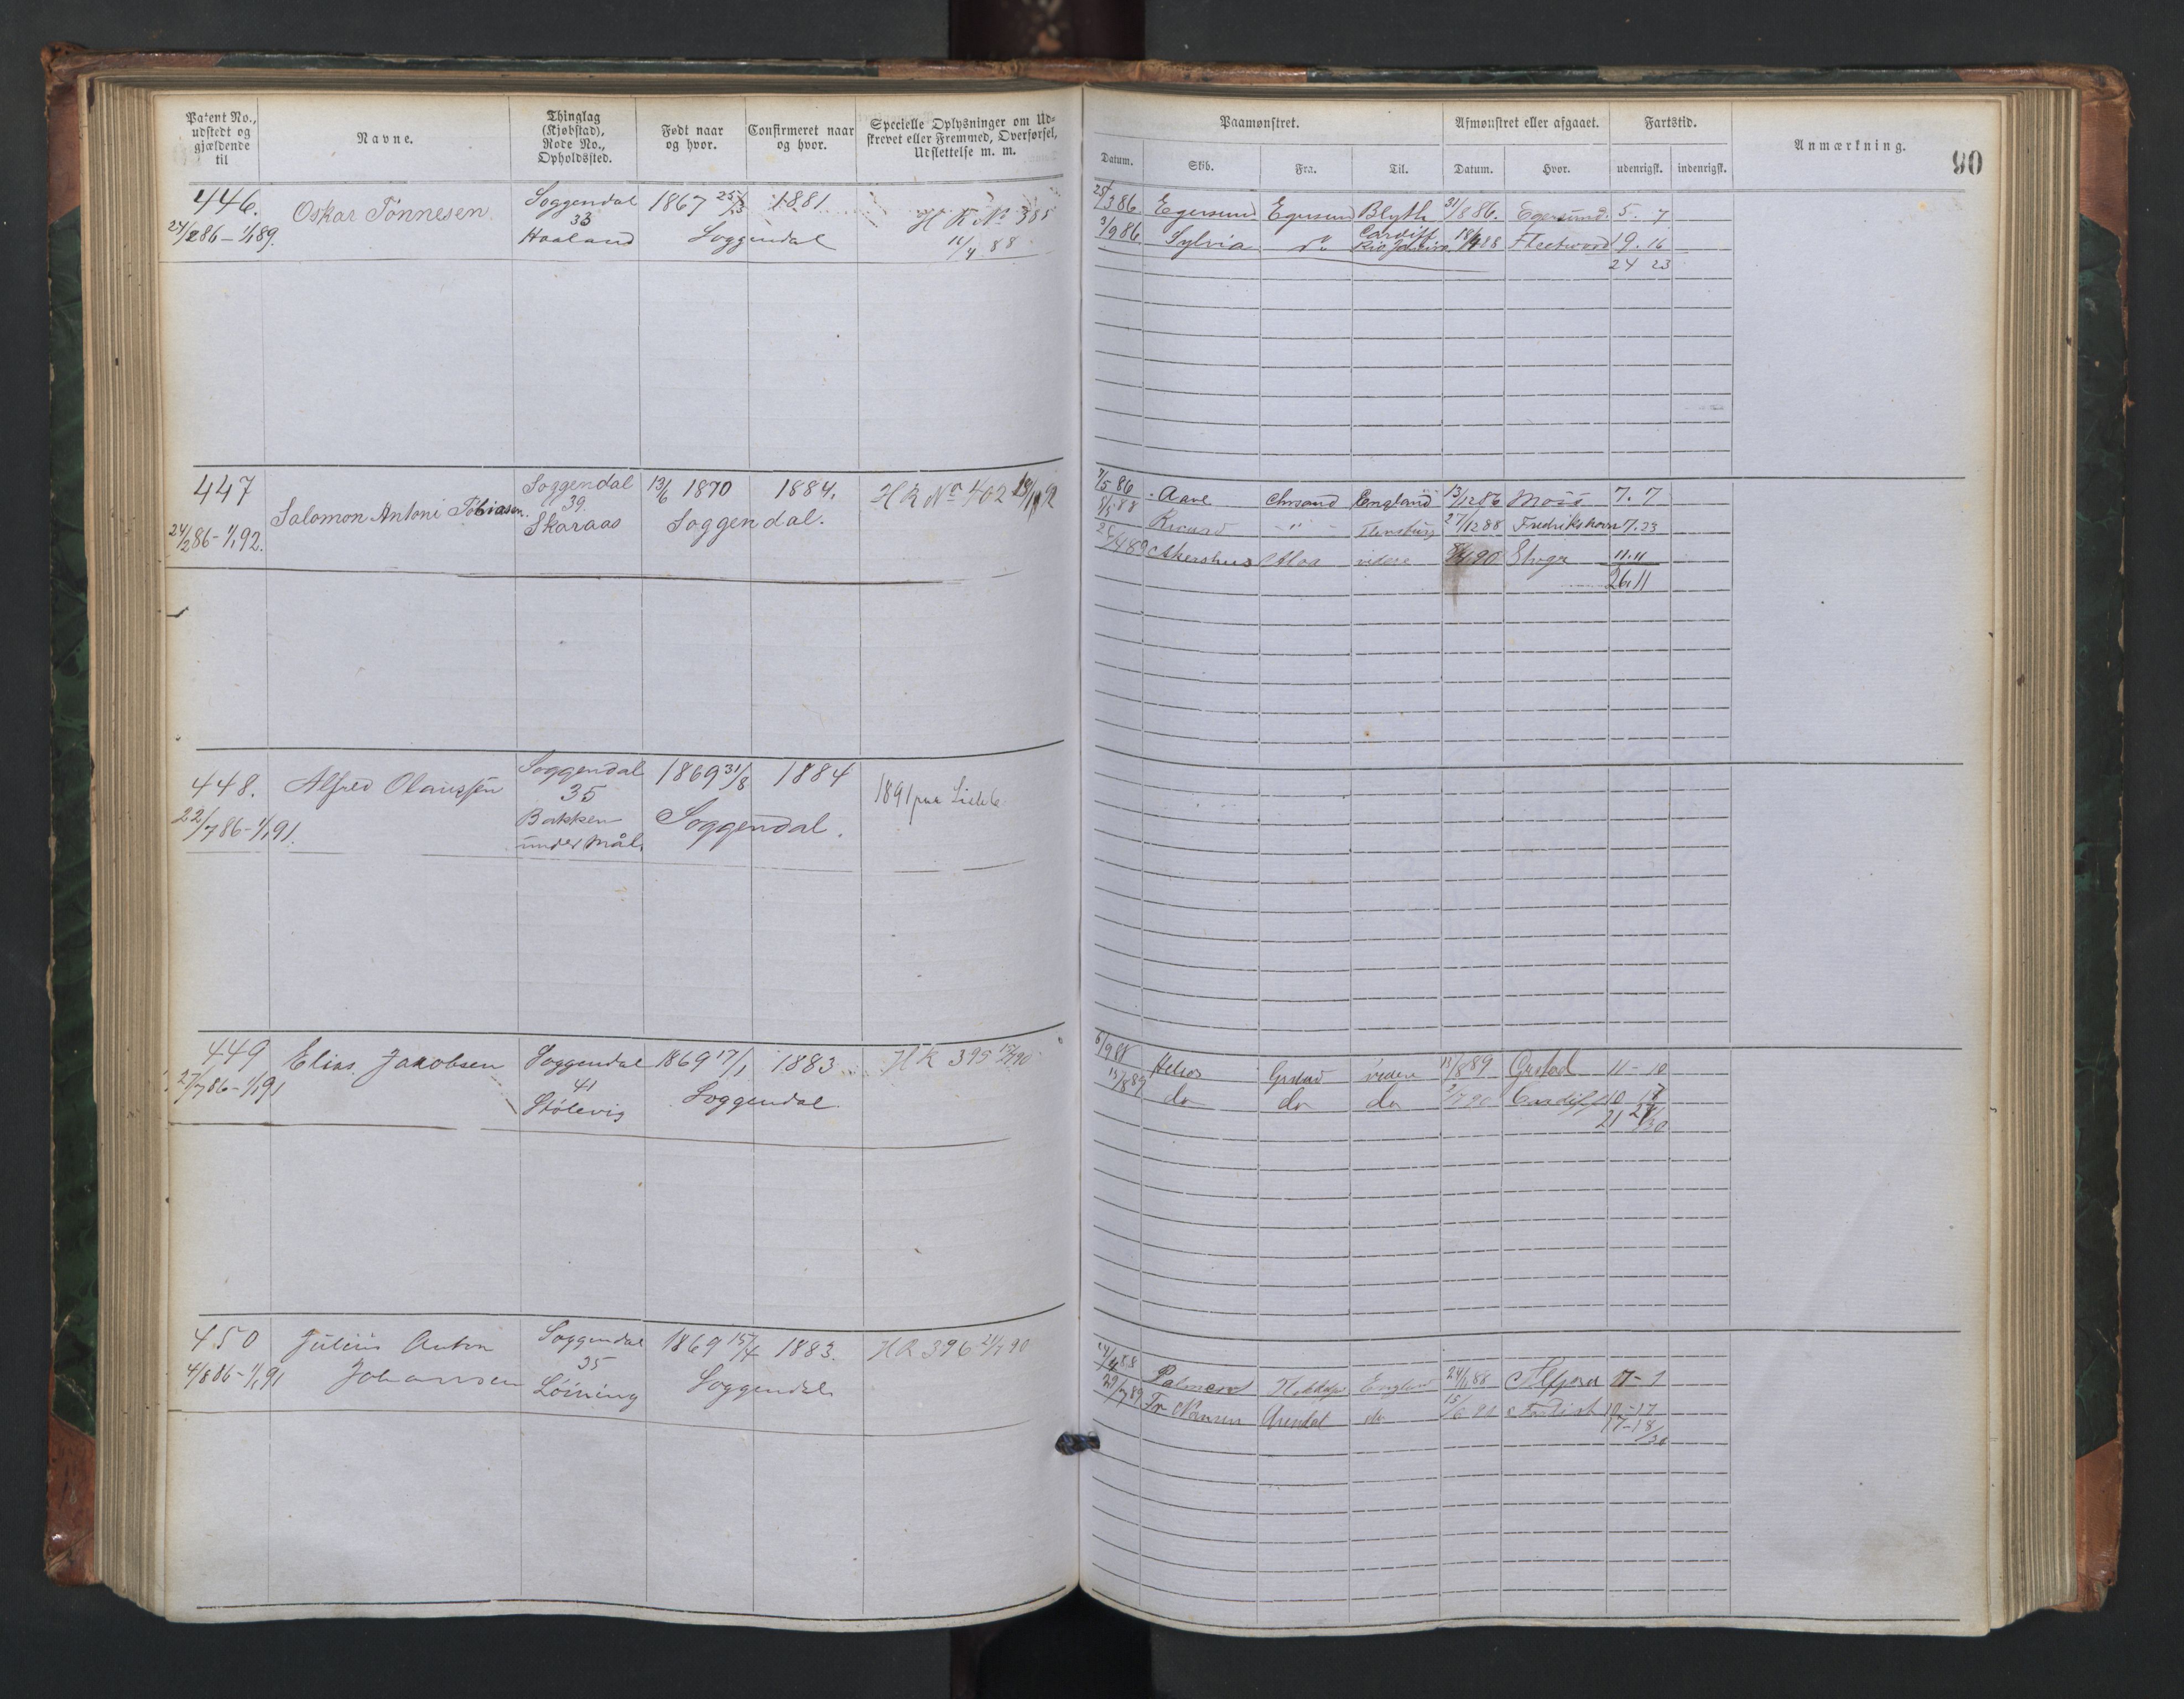 Patent No., udstedt og gjældende til
Navne.
Thinglag (Kjøbstad), Rode No., Opholdssted.
Født naar og hvor.
Confirmeret naar og hvor.
Specielle Oplysninger om Udskrevet eller Fremmed, Overførsel, Udslettelse m. m.
Paamønstret.
Afmønstret eller afgaaet.
Fartstid.
Anmærkning.
90
Datum. Skib. Fra. Til. Datum. Hvor. udenrigsk. indenrigsk.
446. Oskar Tönnesen. Soggendal 1867 25/3 1881 H R No 385
24/2 86 - 1/1 89. 33 Soggendal 11/4 88
Haaland
25/3 86. Egersund Egersund Blyth 31/8 86. Egersund. 5. 7
3/9 86. Sylvia do Cardiff Rio Janeiro 18/4 88 Fleetwood 19. 16
24 23
447 Salomon Antoni Tobiasen. Soggendal 13/6 1870 1884. H R No 402
24/2 86 - 1/1 92. 39. Soggendal.
Skaraas
7/5 86 Aave Chrsand England 13/12 86 Moss 7. 7
8/5 88 " 27/12 88 Fredrikshavn 7. 23
Akershus Alloa videre 90 11. 11
26. 11
448. Alfred Olaussen Soggendal 1869 31/8 1884 1891 paa
22/7 86 - 1/1 91. 35 Soggendal.
Bakken
under Mål.
449 Elias Jakobsen Soggendal 1869 17/1 1883 H R 395
27/7 86 - 1/1 91 41 Soggendal
Stölevig
6/9 88 Helios Grstad videre 89 Grstad 11 - 10
15/8 89 do do do 90 Cardiff 10 17
21 27/30
450 Julius Anton Soggendal 1869 15/4 1883. H R 396
4/8 86 - 1/1 91 Johansen 35 Soggendal
Löining
England 24/ 88 - 1
29/7 89 Fr Nansen Arendal do 15/6 10 - 17
17 - 18/30